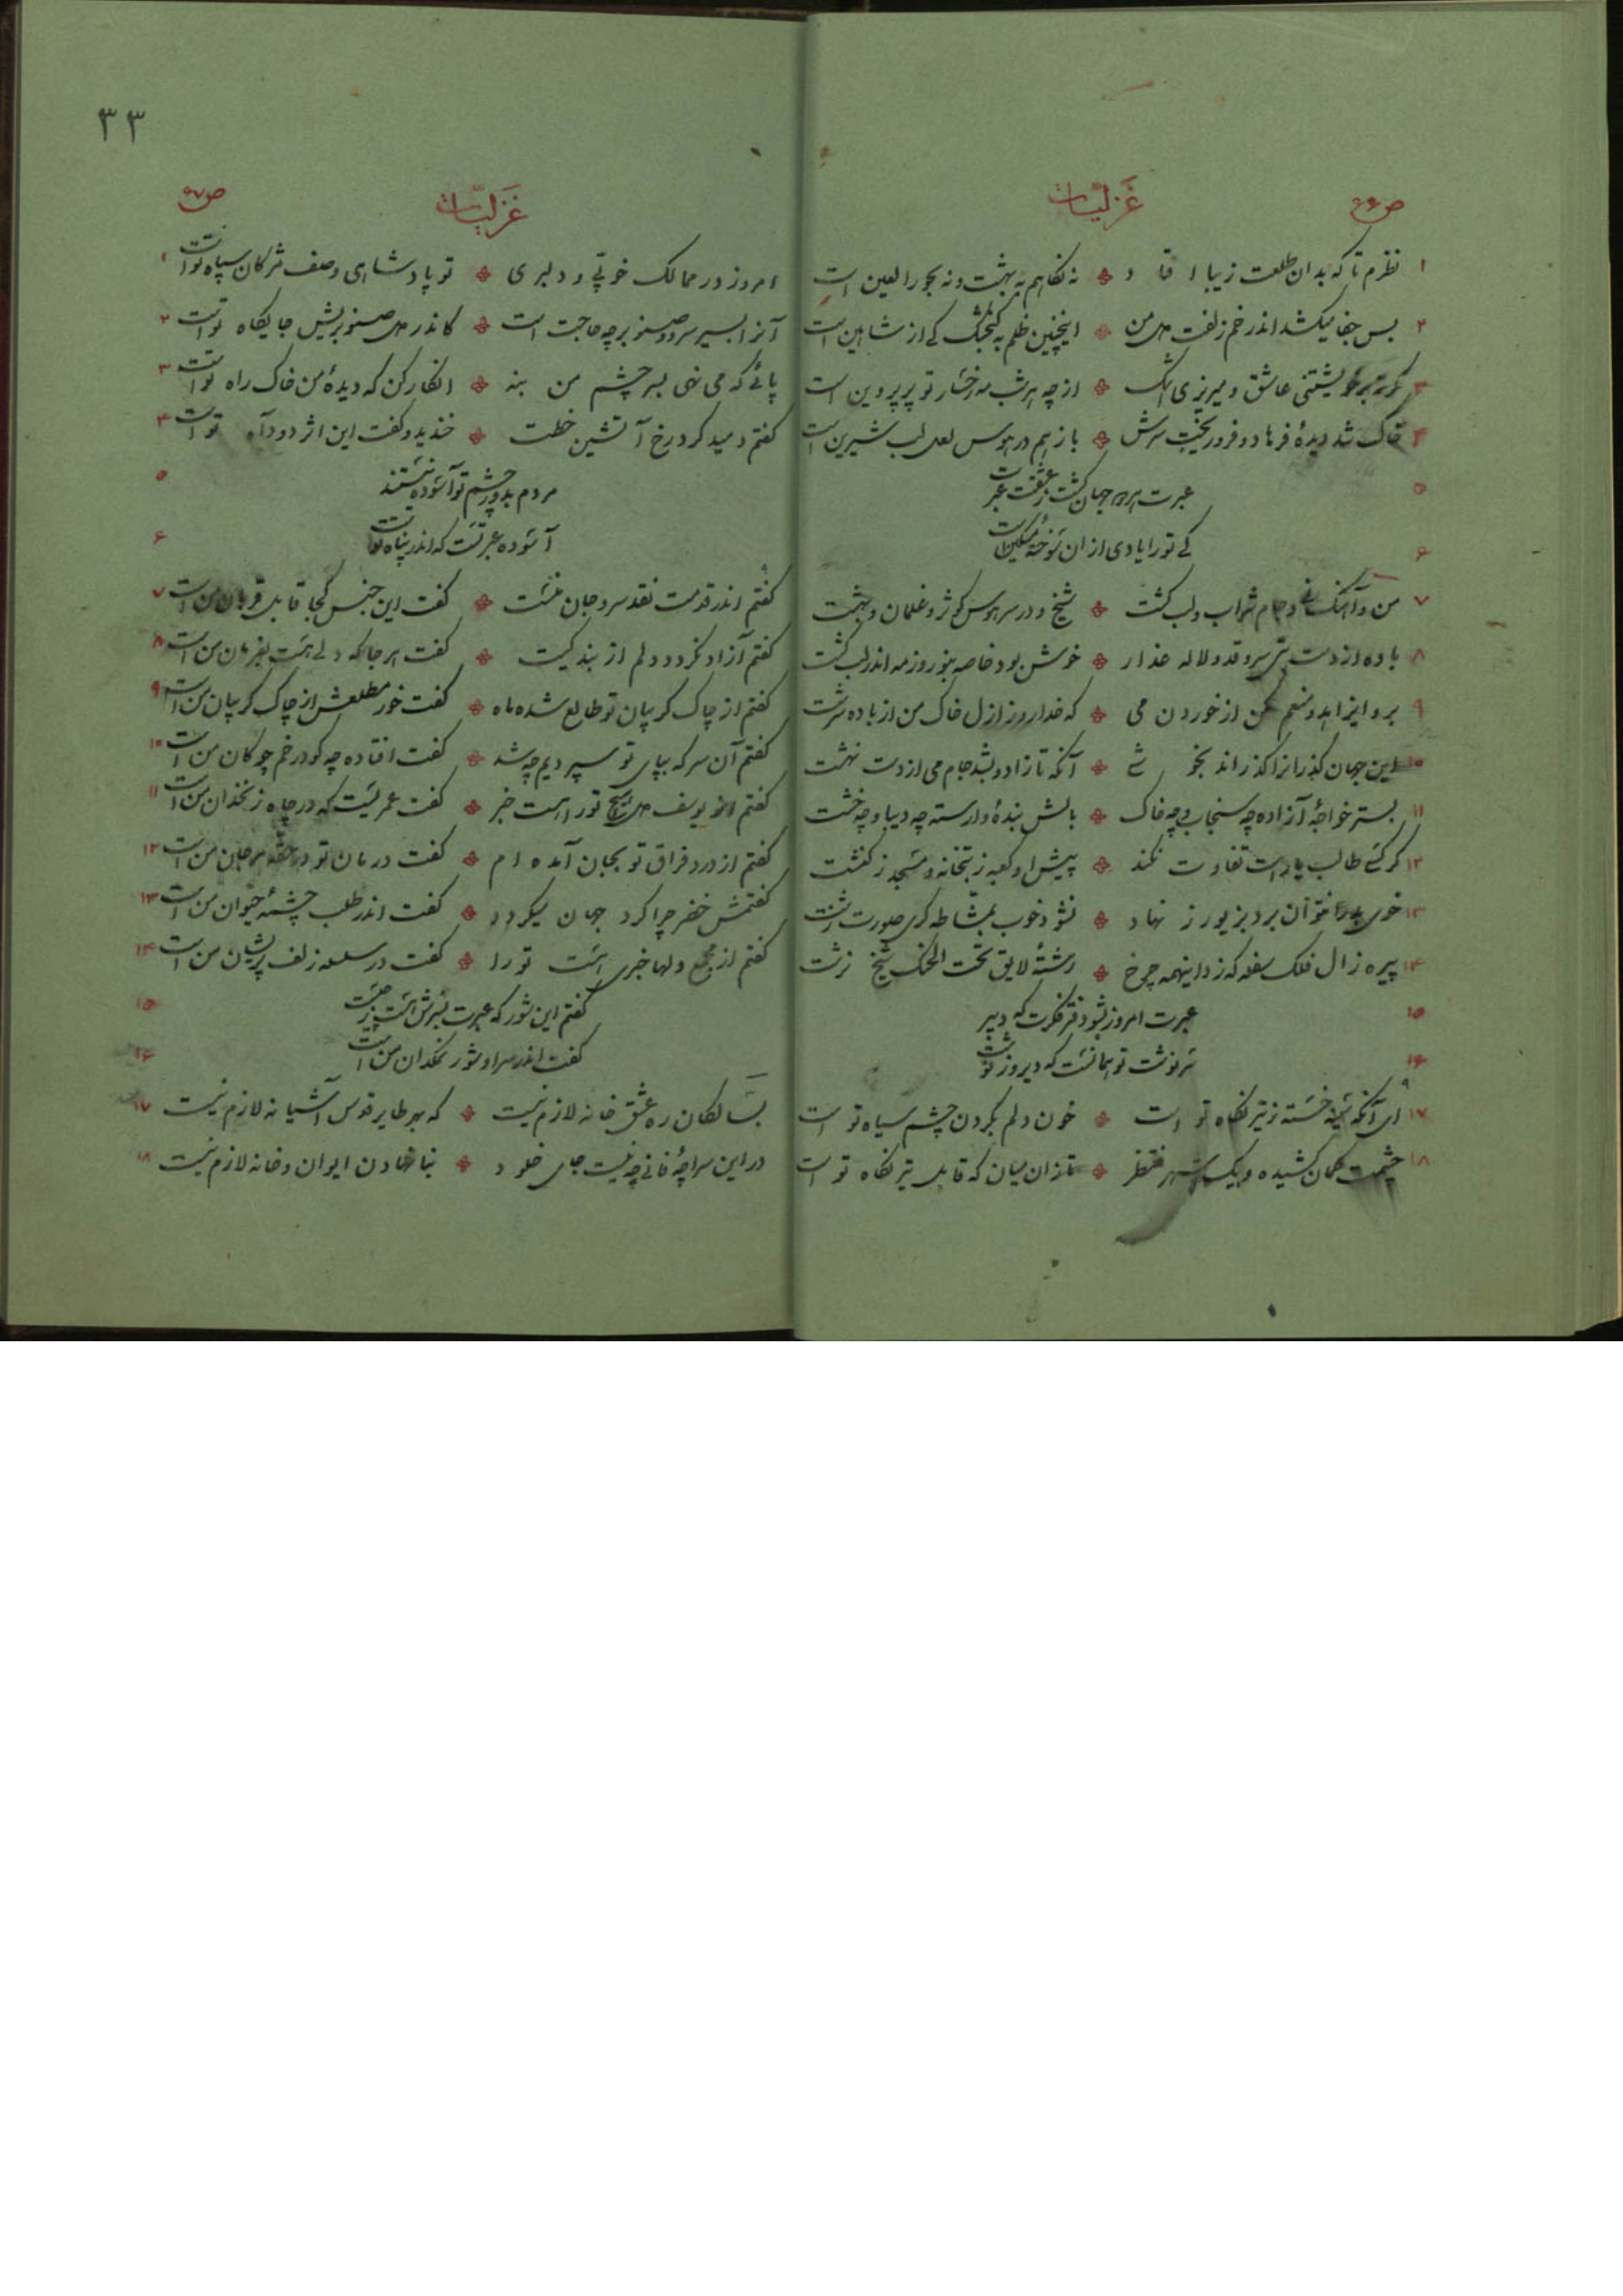 ص ۵۶ غَزَلیّات
۱ نظرم تا که بدان طلعت زیبا افتاد ❖ نه نگاهم به بهشت و نه بحور العین است
۲ بس جفا میکشد اندر خم زلفت دل من ❖ اینچنین ظلم به گنجشک کی از شاهین است
۳ عاشق و میریزی اشک ❖ از چه هر شب مه رخسار تو پر پروین است
۴ خاک شد دیدهٔ فرهاد و فرو ریخت سرش ❖ باز هم در هوس لعل لب شیرین است
۵ عبرت اندر جهان گشت ز عشقت عبرت
۶ کی تو را یادی از ان سوختهٔ مسکین است
۷ من و آهنگ نی و جام شراب و لب کشت ❖ شیخ و در سر هوس کوثر و غلمان و بهشت
۸ باده از دست بتی سرو قد و لاله عذار ❖ خوش بود خاصه بنوروز مه اندر لب کشت
۹ برو ایزاهد و منعم مکن از خوردن می ❖ که خدا روز ازل خاک من از باده سرشت
۱۰ این جهان گذرانرا گذراند بخوشی ❖ آنکه تا زاد و بشد جام می از دست نهشت
۱۱ بستر خواجهٔ آزاده چه سنجاب و چه خاک ❖ بالش بندهٔ وارسته چه دیبا و چه خشت
۱۲ گر کسی طالب یار است تفاوت نکند ❖ پیش او کعبه ز بتخانه و مسجد ز کنشت
۱۳ خوی بد را نتوان برد بزیور ز نهاد ❖ نشود خوب بمشاطه گری صورت زشت
۱۴ پیره زال فلک سفله که زد اینهمه چرخ ❖ رشتهٔ لایق تحت الحنک شیخ نرشت
۱۵ عبرت امروز بشو دفتر فکرت که دبیر
۱۶ سرنوشت تو همانست که دیروز نوشت
۱۷ ای آنکه سینه خسته ز تیر نگاه تو است ❖ خون دلم بگردن چشم سیاه تو است
۱۸ چشمت کمان کشیده و یک شهر منتظر ❖ تا زان میان که قابل تیر نگاه تو است
۳۳
غَزَلیّات ص ۵۷
۱ امروز در ممالک خوبی و دلبری ❖ تو پادشاهی و صف مژگان سپاه تو است
۲ آنرا بسیر سرو و صنوبر چه حاجت است ❖ کاندر دل صنوبریش جایگاه تو است
۳ پائی که می نهی بسر چشم من بنه ❖ انگار کن که دیدهٔ من خاک راه تو است
۴ گفتم دمید گرد رخ آتشین خطت ❖ خندید و گفت این اثر دود آه تو است
۵ مردم بدور چشم تو آسوده نیستند
۶ آسوده عبرتست که اندر پناه تو است
۷ گفتم اندر قدمت نقد سر و جان منست ❖ گفت این جنس کجا قابل قربان من است
۸ گفتم آزاد نگردد دلم از بندگیت ❖ گفت هر جا که دلی هست بفرمان من است
۹ گفتم از چاک گریبان تو طالع شده ماه ❖ گفت خور مطلعش از چاک گریبان من است
۱۰ گفتم آن سر که بپای تو سپردیم چه شد ❖ گفت افتاده چو گو در خم چوگان من است
۱۱ گفتم از یوسف دل هیچ تو را هست خبر ❖ گفت عمریست که در چاه زنخدان من است
۱۲ گفتم از درد فراق تو بجان آمده ام ❖ گفت درمان تو در حقه مرجان من است
۱۳ گفتمش خضر چرا گرد جهان میگردد ❖ گفت اندر طلب چشمهٔ حیوان من است
۱۴ گفتم از مجمع دلها خبری هست تو را ❖ گفت در سلسله زلف پریشان من است
۱۵ گفتم این شور که عبرت بسرش هست ز چیست
۱۶ گفت اندر سر او شور نمکدان من است
۱۷ بسالکان ره عشق خانه لازم نیست ❖ که بهر طایر قدس آشیانه لازم نیست
۱۸ در این سراچهٔ فانی چو نیست جای خلود ❖ بنا نهادن ایوان و خانه لازم نیست